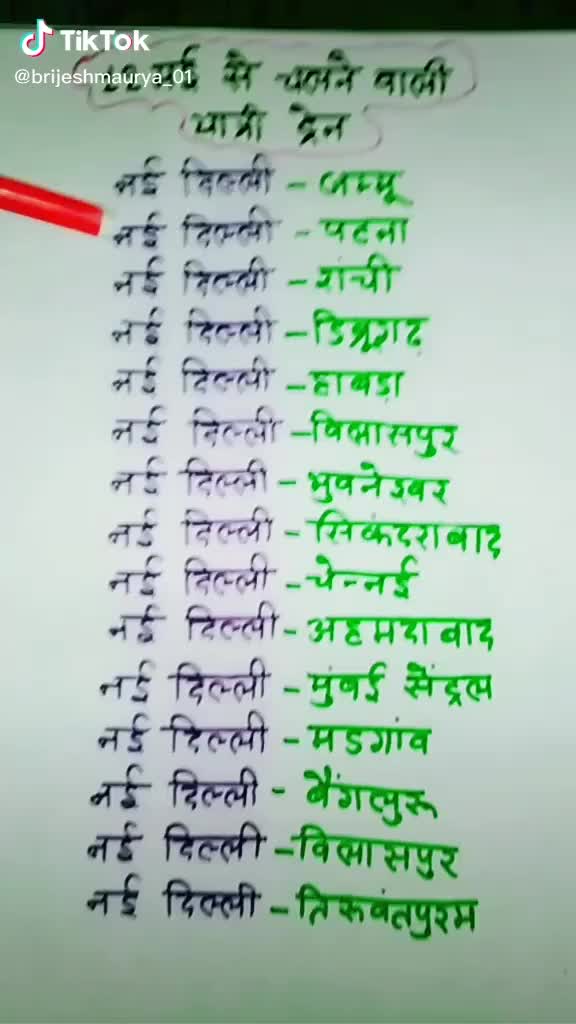 TikTok
@brijeshmaurya_01
12 मई से चलने वाली
यात्री ट्रेन
नई दिल्ली - जम्मू
नई दिल्ली - पटना
नई दिल्ली - रांची
नई दिल्ली - डिब्रूगढ़
नई दिल्ली - हावड़ा
नई दिल्ली - बिलासपुर
नई दिल्ली - भुवनेश्वर
नई दिल्ली - सिकंदराबाद
नई दिल्ली - चेन्नई
नई दिल्ली - अहमदाबाद
नई दिल्ली - मुंबई सेंट्रल
नई दिल्ली - मडगांव
नई दिल्ली - बैंगलुरू
नई दिल्ली - बिलासपुर
नई दिल्ली - तिरूवंतपुरम